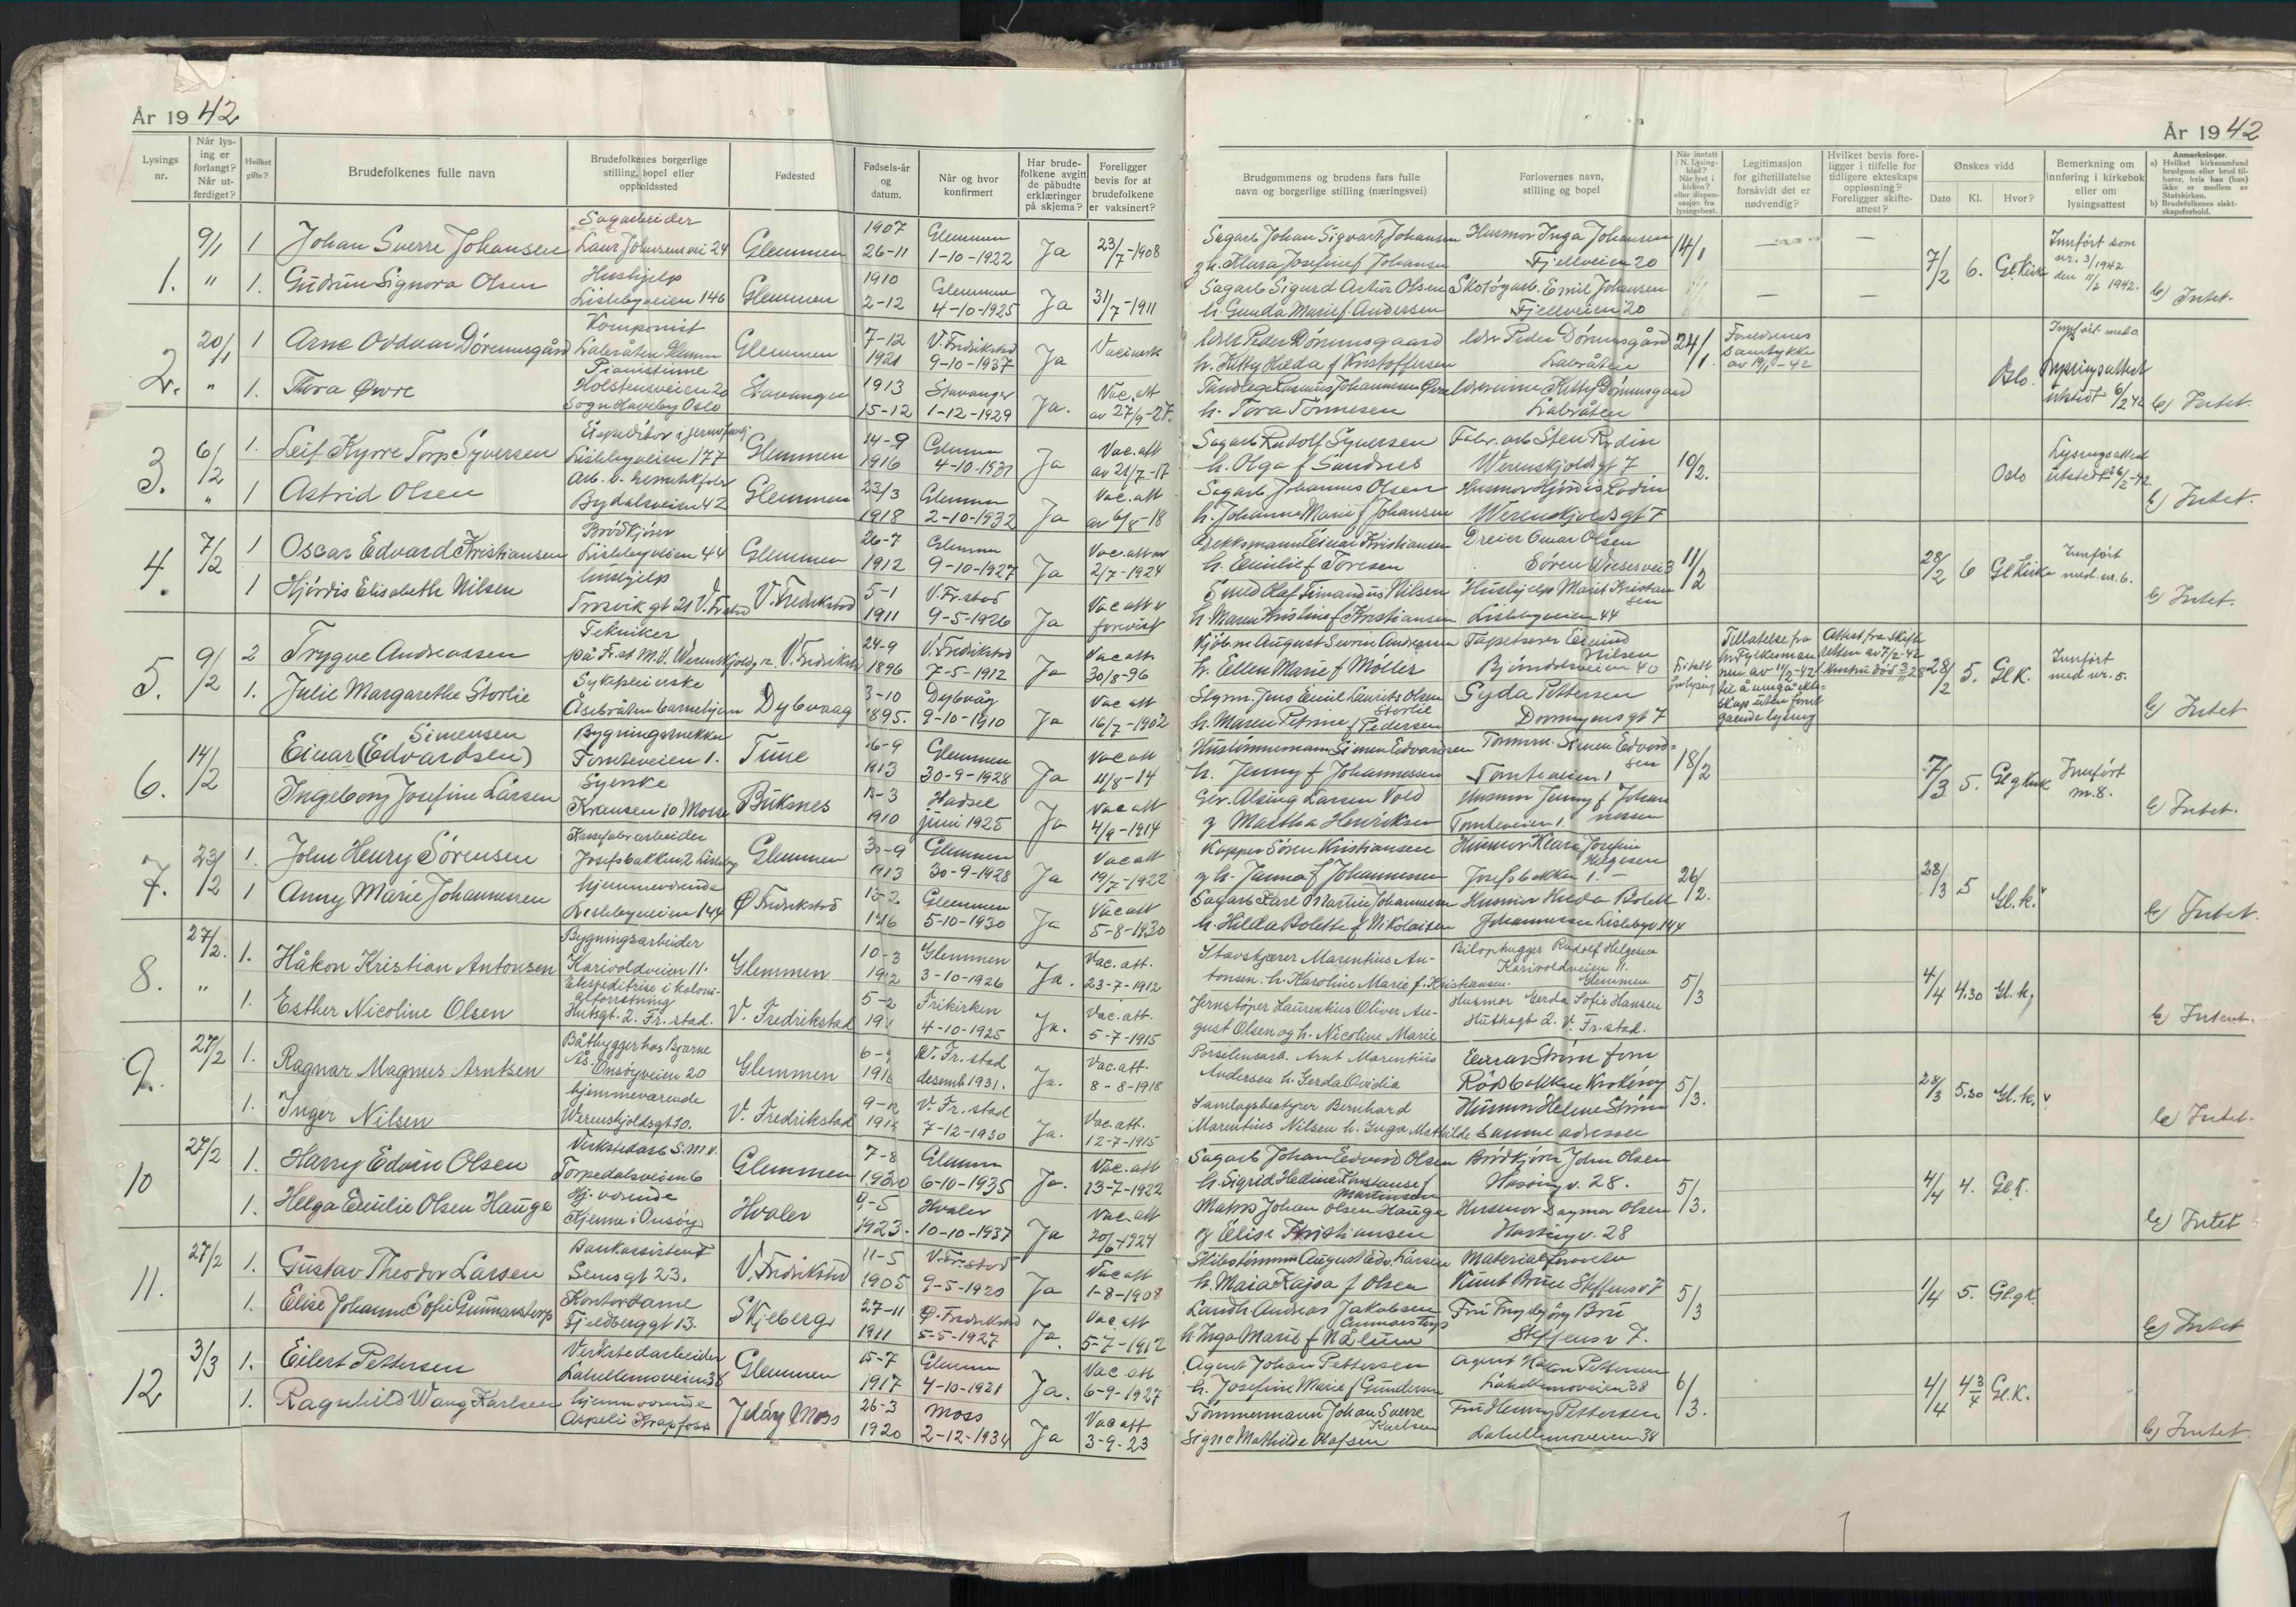 År 1942
Lysings nr.
Når lysing er forlangt? Når utferdiget?
Hvilket gifte?
Brudefolkenes fulle navn
Brudefolkenes borgerlige stilling, bopel eller oppholdssted
Fødested
Fødsels-år og datum.
Når og hvor konfirmert
Har brudefolkene avgitt de påbudte erklæringer på skjema?
Foreligger bevis for at brudefolkene er vaksinert?
1. 9/1 1 Johan Sverre Johansen Sagarbeider Laur Johnsensvei 24 Glemmen 1907 26-11 Glemmen 1-10-1922 Ja 23/7-1908
" 1. Gudrun Signora Olsen Hushjelp Lislebyveien 146 Glemmen 1910 2-12 Glemmen 4-10-1925 Ja 31/7-1911
2. 20/1 1 Arne Oddvar Dørumsgård Komponist Labråten Glemm Glemmen 7-12 1921 V. Fredrikstad 9-10-1937 Ja
" 1. Tora Øvre Pianistinne Holstensveien 20 Sogn Haveby Oslo Stavanger 1913 15-12 Stavanger 1-12-1929 Ja. Vac. att av 27/9-27.
3. 6/2 1. Leif Kyrre Torp Syversen Lislebyveien 177 Glemmen 14-9 1916 Glemm 4-10-1931 Ja Vac. att av 21/7-17
" 1 Astrid Olsen Bydalsveien 42 Glemmen 23/3 1918 Glemmen 2-10-1932 Ja Vac. att av 6/8-18
4. 7/2 1 Oscar Edvard Kristiansen Brødkjører Lislebyveien 44 Glemmen 26-7 1912 Glemm 9-10-1927 Ja Vac. att av 2/7-1924
1 Hjørdis Elisabeth Nilsen Hushjelp Trosvik gt 21 V. Fr.stad V. Fredrikstad 5-1 1911 V. Fr.stad 9-5-1926 Ja Vac att v forevist
5. 9/2 2 Trygve Andreassen Tekniker på Fr.st M.V. Werenskjoldg 12. V. Fredrikstad 24-9 1896 V. Fredrikstad 7-5-1912 Ja Vac att 30/8-96
1. Julie Margarethe Storlie Sykepleierske Åsebråten barnehjem Dybvaag 3-10 1895. Dybvåg 9-10-1910 Ja Vac att 16/7-1902
6. 14/2 Einar Simensen (Edvardsen) Bygningssnekker Tomteveien 1. Tune 16-9 1913 Glemmen 30-9-1928 Ja Vac att 4/8-14
Ingeborg Josefine Larsen Syerske Kransen 10 Moss Buksnes 12-3 1910 Hadsel juni 1925 Ja Vac att 4/9-1914
7. 23/2 1. John Henry Sørensen Josefsbakken 2 Lisleby Glemmen 30-9 1913 Glemmen 30-9-1928 Ja Vac att 19/7-1922
1 Anny Marie Johannessen hjemmeværende Lislebyveien 144 Ø Fredrikstad 13-2 1916 Glemmen 5-10-1930 Ja Vac att 5-8-1930
8. 27/2. 1. Håkon Kristian Antonsen Bygningsarbeider Karivoldveien 11. Glemmen 10-3 1912 Glemmen 3-10-1926 Ja. Vac. att. 23-7-1912
" 1. Esther Nicoline Olsen Ekspeditrise i kolonialforretning Hutsgt. 2. Fr. stad. V. Fredrikstad 5-2 Frikirken 4-10-1925 Ja. Vac. att. 5-7-1915
9. 27/2 1. Ragnar Magnus Arntsen Båtbygger hos Bjarne Ås. Onsøyveien 20 Glemmen V. Fr. stad desemb 1931. Ja. Vac. att. 8-8-1918
1. Inger Nilsen hjemmeværende Werenskjoldsgt 10. V. Fredrikstad V. Fr. stad 7-12-1930 Ja. Vac. att. 12-7-1915
10 27/2 1. Harry Edvin Olsen Verkstedarb S.M.V. Torpedalsveien 6 Glemmen 7-8 1920 Glemm 6-10-1935 Ja. Vac. att 13-7-1922
1. Helga Emilie Olsen Hauge Hj. værende Kjenne i Onsøy Hvaler 9-5 1923. Hvaler 10-10-1937 Ja Vac. att 20/6-1924
11. 27/2 1. Gustav Theodor Larsen Bankassistent Sensgt 23. V. Fredrikstad 11-5 1905 V. Fr.stad 9-5-1920 Ja Vac att 1-8-1908
1. Elise Johanne Sofie Gunnarstorp Kontordame Fjeldberggt 13. Skjeberg 27-11 1911 Ø. Fredrikstad 5-5-1927 Ja. Vac. att 5-7-1912
12 3/3 1. Eilert Pettersen Verkstedarbeider Lahellemoveien 38 Glemmen 15-7 1917 Glemm 4-10-1931 Ja. Vac. att 6-9-1927
1. Ragnhild Wang Karlsen hjemmeværende Aspeli Krapfoss Jeløy Moss 26-3 1920 Moss 2-12-1934 Ja Vac att 3-9-23
År 1942
Brudgommens og brudens fars fulle navn og borgerlige stilling (næringsvei)
Forlovernes navn, stilling og bopel
Når inntatt i N. Lysingblad? Når lyst i kirken? eller dispensasjon fra lysingsbest.
Legitimasjon for giftetillatelse forsåvidt det er nødvendig?
Hvilket bevis foreligger i tilfelle for tidligere ekteskaps oppløsning? Foreligger skifteattest?
Ønskes vidd
Dato Kl. Hvor?
Bemerkning om innføring i kirkebok eller om lysingsattest
Anmerkninger. a) Hvilket kirkesamfund brudgom eller brud tilhører, hvis han (hun) ikke er medlem av Statskirken. b) Brudefolkenes slektskapsforhold.
Sagarb Johan Sigvart Johansen Husmor Inga Johansen 14/1
g h. Klara Josefine f Johansen Fjellveien 20 7/2 6. Gl Kirke Innført som nr. 3/1942 den 11/2 1942.
Sagarb Sigurd Artur Olsen Skotøyarb. Emil Johansen
h. Gunda Marie f. Andersen Fjellveien 20 b) Intet.
Peder Dørumsgaard Peder Dørumsgård 24/1. Foreldrenes samtykke av 19/1-42
h. Kitty Hilda f Kristoffersen Labråten Oslo. Lysningsattest utstedt 6/2 42
Tannlege Rasmus Johannesen Øvre Kitty Dørumsgaard
h. Tora Tønnesen Labråten b) Intet.
Sagarb Rudolf Syversen Fabr. arb Sten Rodin
h. Olga f Sandnes Werenskjoldsgt 7 10/2. Oslo Lysingsattest utstedt 26/2-42.
Sagarb Johannes Olsen Husmor Hjørdis Rodin
h. Johanne Marie f Johansen Werenskjoldsgt 7 b) Intet.
Dekksmann Einar Kristiansen Dreier Omar Olsen
h. Emilie f Toresen Søren Wiesesvei 3 11/2 28/2 6 Gl Kirke Innført med nr. 6.
Smed Olaf Fernandus Nilsen Hushjelp Marit Kristiansen
h. Maren Kristine f Kristiansen Lislebyveien 44 b) Intet.
Kjøbm August Severin Andreassen Tapetserer Eivind Nilsen
h. Ellen Marie f Møller Bjørndalsveien 40 Fritatt for lysing Tillatelse fra Fylkesmannen av 11/2-42 til å inngå ekteskap uten forutgående lysing Attest fra skifteretten av 7/2-42 28/2 5. Gl K. Innført med nr. 5.
Styrm. Jens Emil Laurits Olsen Storlie Gyda Pettersen
h. Maren Petrine f Pedersen Dronningens gt 7 b) Intet
Simen Edvardsen Tømrer. Simen Edvardsen 18/2
h. Jenny f Johannessen Tomteveien 1 7/3 5. Gl g Kirk Innført nr. 8.
Alsing Larsen Vold Husmor Jenny f Johannessen
g Martha Henriksen Tomteveien 1. b) Intet.
Kapper Søren Kristiansen Husmor Klara Josefine Helgesen
g h. Janna f Johannessen Josefsbakken 1. 26/2. 28/3 5 Gl. k.
Sagarb Karl Martin Johannessen Husmor Hilda Bolette
h. Hilda Bolette f Nikolaisen Johannessen Lislebyv. 144 b) Intet.
Stavskjærer Marentius An- Bilopphugger Rudolf Helgesen
tonsen. h. Karoline Marie f. Kristiansen. Karivoldveien 11. Glemmen 5/3 4/4 4.30 Gl. k.
Jernstøper Laurentius Oliver Au- Husmor Gerda Sofie Hansen
gust Olsen og h. Nicoline Marie Huthsgt 2. V. Fr. stad. b) Intet.
Porselensarb. Arnt Marentius Einar Strøm
Andersen h. Gerda Ovidia Rødsbakken Krokerøy 5/3. 28/3 5.30 Gl. k.
Bernhard Husmor Helene Strøm
Marentius Nilsen h. Inga Mathilde Samme adresse b) Intet.
Sagarb Johan Edvard Olsen Brødkjører John Olsen
h. Sigrid Hedine Konstanse f Martinsen Hassingv. 28. 5/3. 4/4 4. Gl. K.
Matros Johan Olsen Hauge Husmor Dagmar Olsen
g Elise Kristiansen Hassingv. 28 b) Intet
Skibstømmerm August Edv. Larsen Materialforvalter
h. Maia Kajsa f Olsen Knut Bruu Steffensv 7 5/3 1/4 5. Gl.g K.
Landh. Andreas Jakobsen Gunnarstorp Fru Ingebjørg Bru
h. Inga Marie f Nålum Steffensv 7. b) Intet
Agent Johan Pettersen Agent Håkon Pettersen
h. Josefine Marie f Gundersen Lahellemoveien 38 6/3. 4/4 4 3/4 Gl. K.
Tømmermann Johan Sverre Karlsen Fru Henny Pettersen
Signe Mathilde Olafsen Lahellemoveien 38 b) Intet.